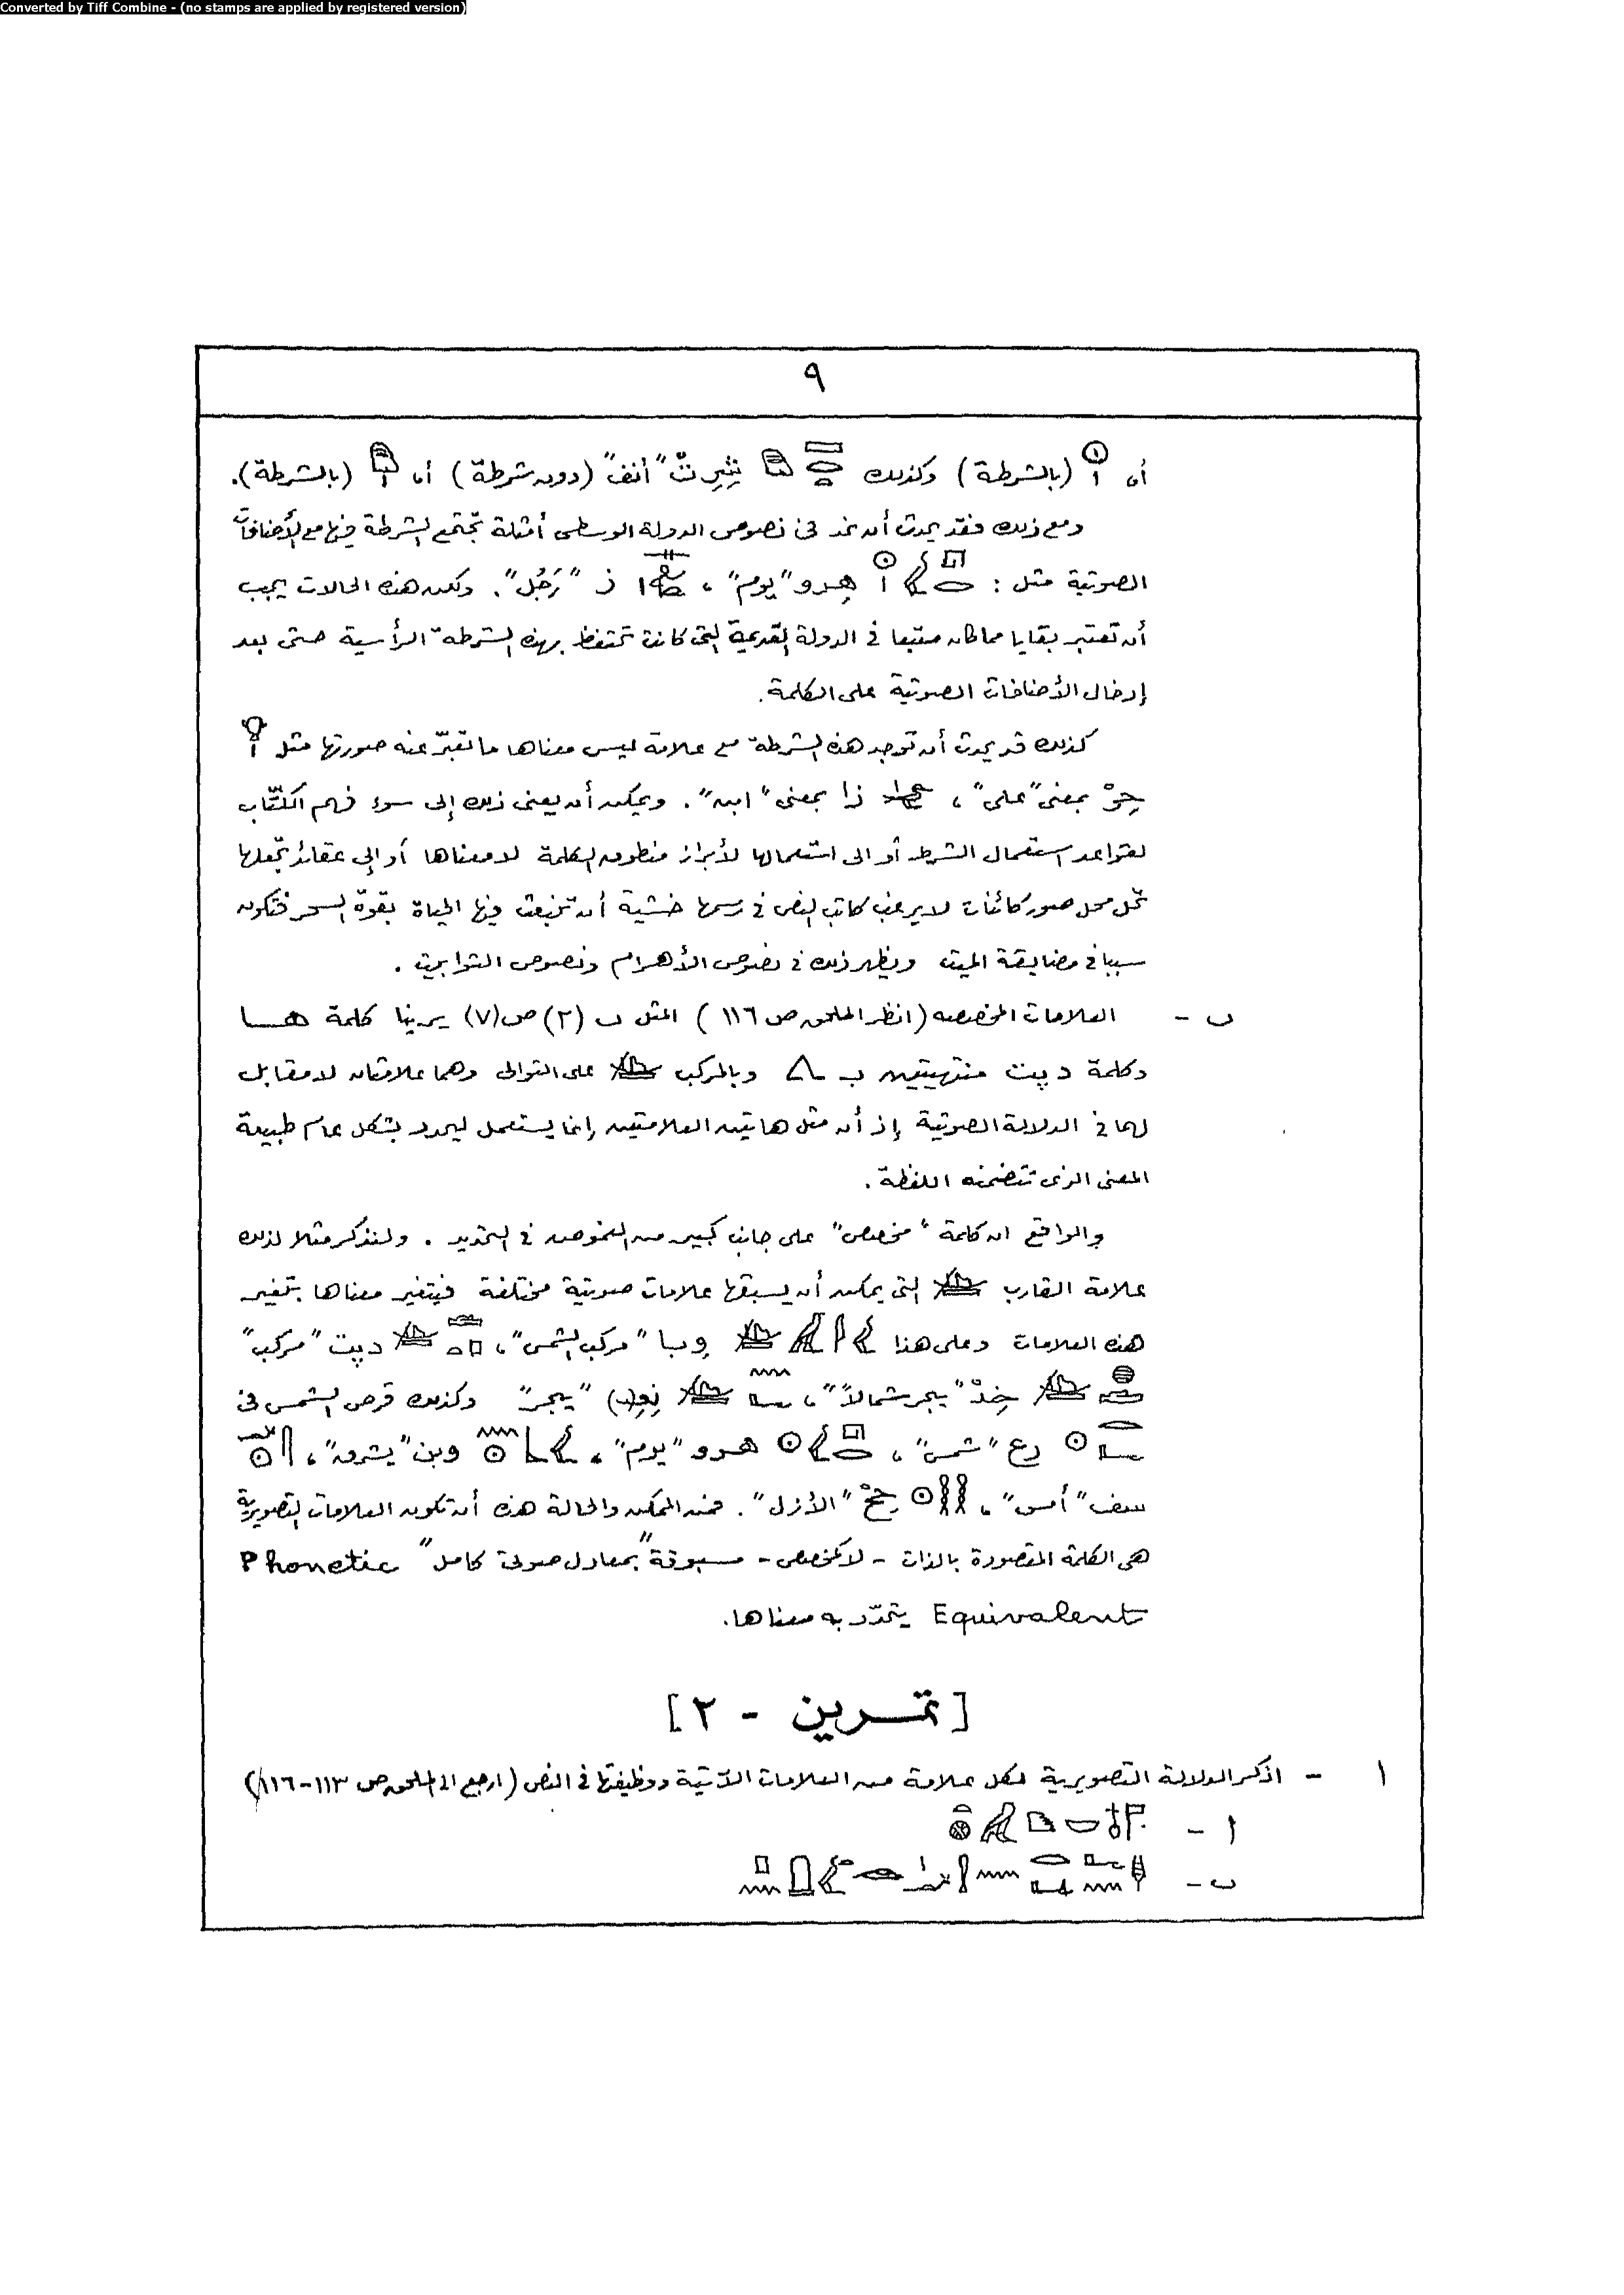 Converted by Tiff Combine - (no stamps are applied by registered version)
٩
أو (بالشرطة) وكذلك "أنف" (دون شرطة) أو (بالشرطة).
ومع ذلك فقد يحدث أن نجد فى نصوص الدولة الوسطى أمثلة تجتمع الشرطة فيها مع الأضافات
الصوتية مثل : هرو "يوم" ، ز "رَجُل". ولكن هذه الحالات يجب
أن تعتبر بقايا مما كان متبعا فى الدولة القديمة التى كانت تحتفظ بهذه الشرطة الرأسية حتى بعد
إدخال الأضافات الصوتية على الكلمة.
كذلك قد يحدث أن توجد هذه الشرطة مع علامة ليس معناها ما تعبّر عنه صورتها مثل
حِرْ بمعنى "على" ، زا بمعنى "ابن". ويمكن أن يعزى ذلك إلى سوء فهم الكُتّاب
لقواعد استعمال الشرط أو الى استعمالها لأبراز منطوق الكلمة لا معناها أو إلى عقائد تجعلها
تحل محل صور كائنات لا يرغب كاتب النص فى رسمها خشية أن تنبعث فيها الحياة بقوة السحر فتكون
سببا فى مضايقة الميت ويظهر ذلك فى نصوص الأهرام ونصوص التوابيت .
ب - العلامات المخصصه (انظر الملحق ص ١١٦ ) المثل ب (٢) ص (٧) يرينا كلمة هـا
وكلمة دپت منتهيتين بـ وبالمركب على التوالى وهما علامتان لا مقابل
لهما فى الدلالة الصوتية إذ أن مثل هاتين العلامتين إنما يستعمل ليحدد بشكل عام طبيعة
المعنى الذى تتضمنه اللفظة .
والواقع ان كلمة "مخصص" على جانب كبير من الغموض فى التحديد . ولنذكر مثلا لذلك
علامة القارب التى يمكن أن يسبقها علامات صوتية مختلفة فيتغير معناها بتغير
هذه العلامات وعلى هذا وبا "مركب الشمس"، دپت "مركب"
خِدْ "يبحر شمالاً"، نِعِ(ى) "يبحر" وكذلك قرص الشمس فى
رع "شمس" ، هرو "يوم" ، وبن "يشرق" ،
سف "أمس" ، حِحْ "الأزل" . فمن الممكن والحالة هذه أن تكون العلامات التصويرية
هى الكلمة المقصودة بالذات - لا كمخصص - مسبوقة "بمعادل صوتى كامل" Phonetic
Equivalent يتحدّد به معناها.
[ تمرين - ٢ ]
١ - اذكر الدلالة التصويرية لكل علامة من العلامات الآتية ووظيفتها فى النص (ارجع الى الملحق ص ١١٣-١١٦)
أ -
ب -